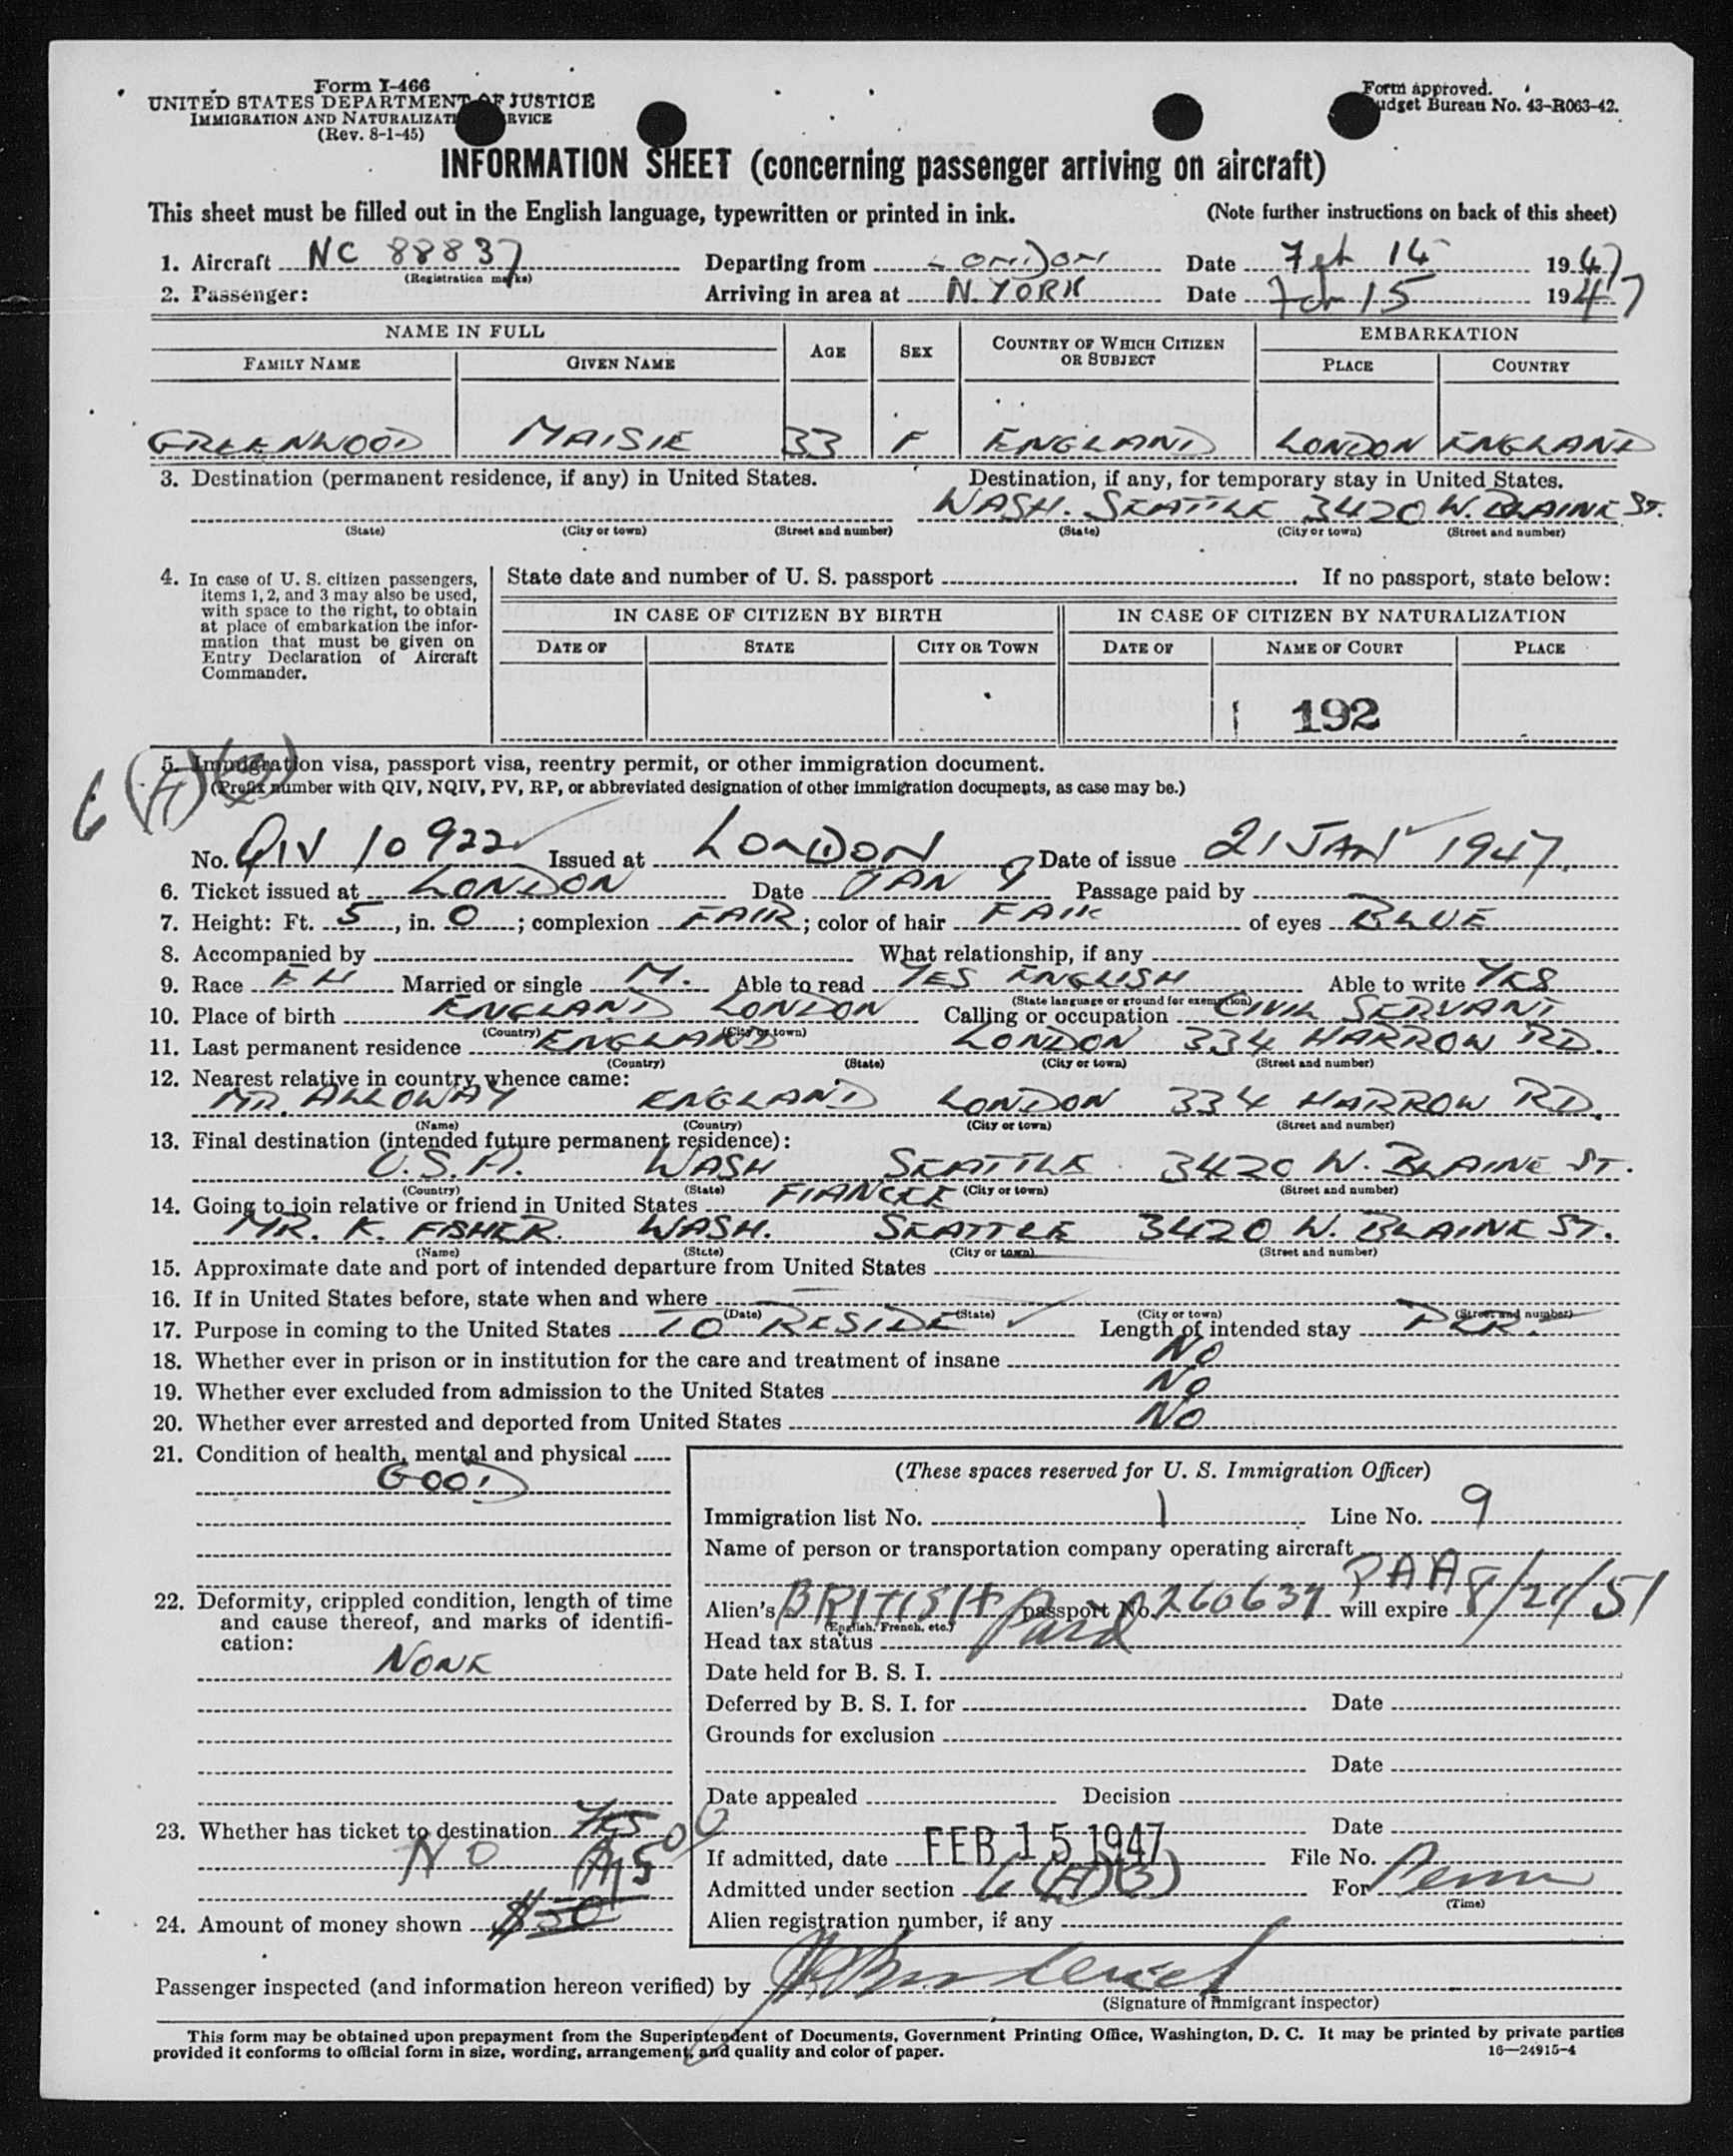 Form I-466
UNITED STATES DEPARTMENT OF JUSTICE
IMMIGRATION AND NATURALIZATI RVICE
(Rev. 8-1-45)
Form approved.
udget Bureau No. 43-R063-42.
INFORMATION SHEET (concerning passenger arriving on aircraft)
This sheet must be filled out in the English language, typewritten or printed in ink. (Note further instructions on back of this sheet)
1. Aircraft NC 88837 Departing from LONDON Date Feb 14 1947
(Registration marks)
2. Passenger: Arriving in area at N. YORK Date Feb 15 1947
NAME IN FULL AGE SEX COUNTRY OF WHICH CITIZEN OR SUBJECT EMBARKATION
FAMILY NAME GIVEN NAME PLACE COUNTRY
GREENWOOD MAISIE 33 F ENGLAND LONDON ENGLAND
3. Destination (permanent residence, if any) in United States. Destination, if any, for temporary stay in United States.
WASH. SEATTLE 3420 W. BLAINE ST.
(State) (City or town) (Street and number) (State) (City or town) (Street and number)
4. In case of U. S. citizen passengers, items 1, 2, and 3 may also be used, with space to the right, to obtain at place of embarkation the information that must be given on Entry Declaration of Aircraft Commander.
State date and number of U. S. passport . If no passport, state below:
IN CASE OF CITIZEN BY BIRTH IN CASE OF CITIZEN BY NATURALIZATION
DATE OF STATE CITY OR TOWN DATE OF NAME OF COURT PLACE
192
6 (A)(3)
5. Immigration visa, passport visa, reentry permit, or other immigration document.
(Prefix number with QIV, NQIV, PV, RP, or abbreviated designation of other immigration documents, as case may be.)
No. QIV 10922 Issued at LONDON Date of issue 21 JAN 1947.
6. Ticket issued at LONDON Date JAN 9 Passage paid by
7. Height: Ft. 5, in. 0; complexion FAIR; color of hair FAIR of eyes BLUE
8. Accompanied by What relationship, if any
9. Race Married or single M. Able to read YES ENGLISH Able to write YES
(State language or ground for exemption)
10. Place of birth ENGLAND LONDON Calling or occupation CIVIL SERVANT
(Country) (City or town)
11. Last permanent residence ENGLAND LONDON 334 HARROW RD.
(Country) (State) (City or town) (Street and number)
12. Nearest relative in country whence came:
MR. ALLOWAY ENGLAND LONDON 334 HARROW RD.
(Name) (Country) (City or town) (Street and number)
13. Final destination (intended future permanent residence):
U.S.A. WASH SEATTLE 3420 W. BLAINE ST.
(Country) (State) (City or town) (Street and number)
14. Going to join relative or friend in United States FIANCEE
MR. K. FISHER. WASH. SEATTLE 3420 W. BLAINE ST.
(Name) (State) (City or town) (Street and number)
15. Approximate date and port of intended departure from United States
16. If in United States before, state when and where
(Date) (State) (City or town) (Street and number)
17. Purpose in coming to the United States TO RESIDE Length of intended stay PER.
18. Whether ever in prison or in institution for the care and treatment of insane NO
19. Whether ever excluded from admission to the United States NO
20. Whether ever arrested and deported from United States NO
21. Condition of health, mental and physical
GOOD
22. Deformity, crippled condition, length of time and cause thereof, and marks of identification:
NONE
23. Whether has ticket to destination YES
NO
24. Amount of money shown $50
(These spaces reserved for U. S. Immigration Officer)
Immigration list No. 1 Line No. 9
Name of person or transportation company operating aircraft
PAA
Alien's BRITISH passport No. 260637 will expire 8/21/51
(English, French, etc.)
Head tax status Paid
Date held for B. S. I.
Deferred by B. S. I. for Date
Grounds for exclusion
Date
Date appealed Decision
Date
If admitted, date FEB 15 1947 File No.
Admitted under section 6(A)(3) For Perm
(Time)
Alien registration number, if any
Passenger inspected (and information hereon verified) by
(Signature of immigrant inspector)
This form may be obtained upon prepayment from the Superintendent of Documents, Government Printing Office, Washington, D. C. It may be printed by private parties
provided it conforms to official form in size, wording, arrangement, and quality and color of paper. 16—24915-4